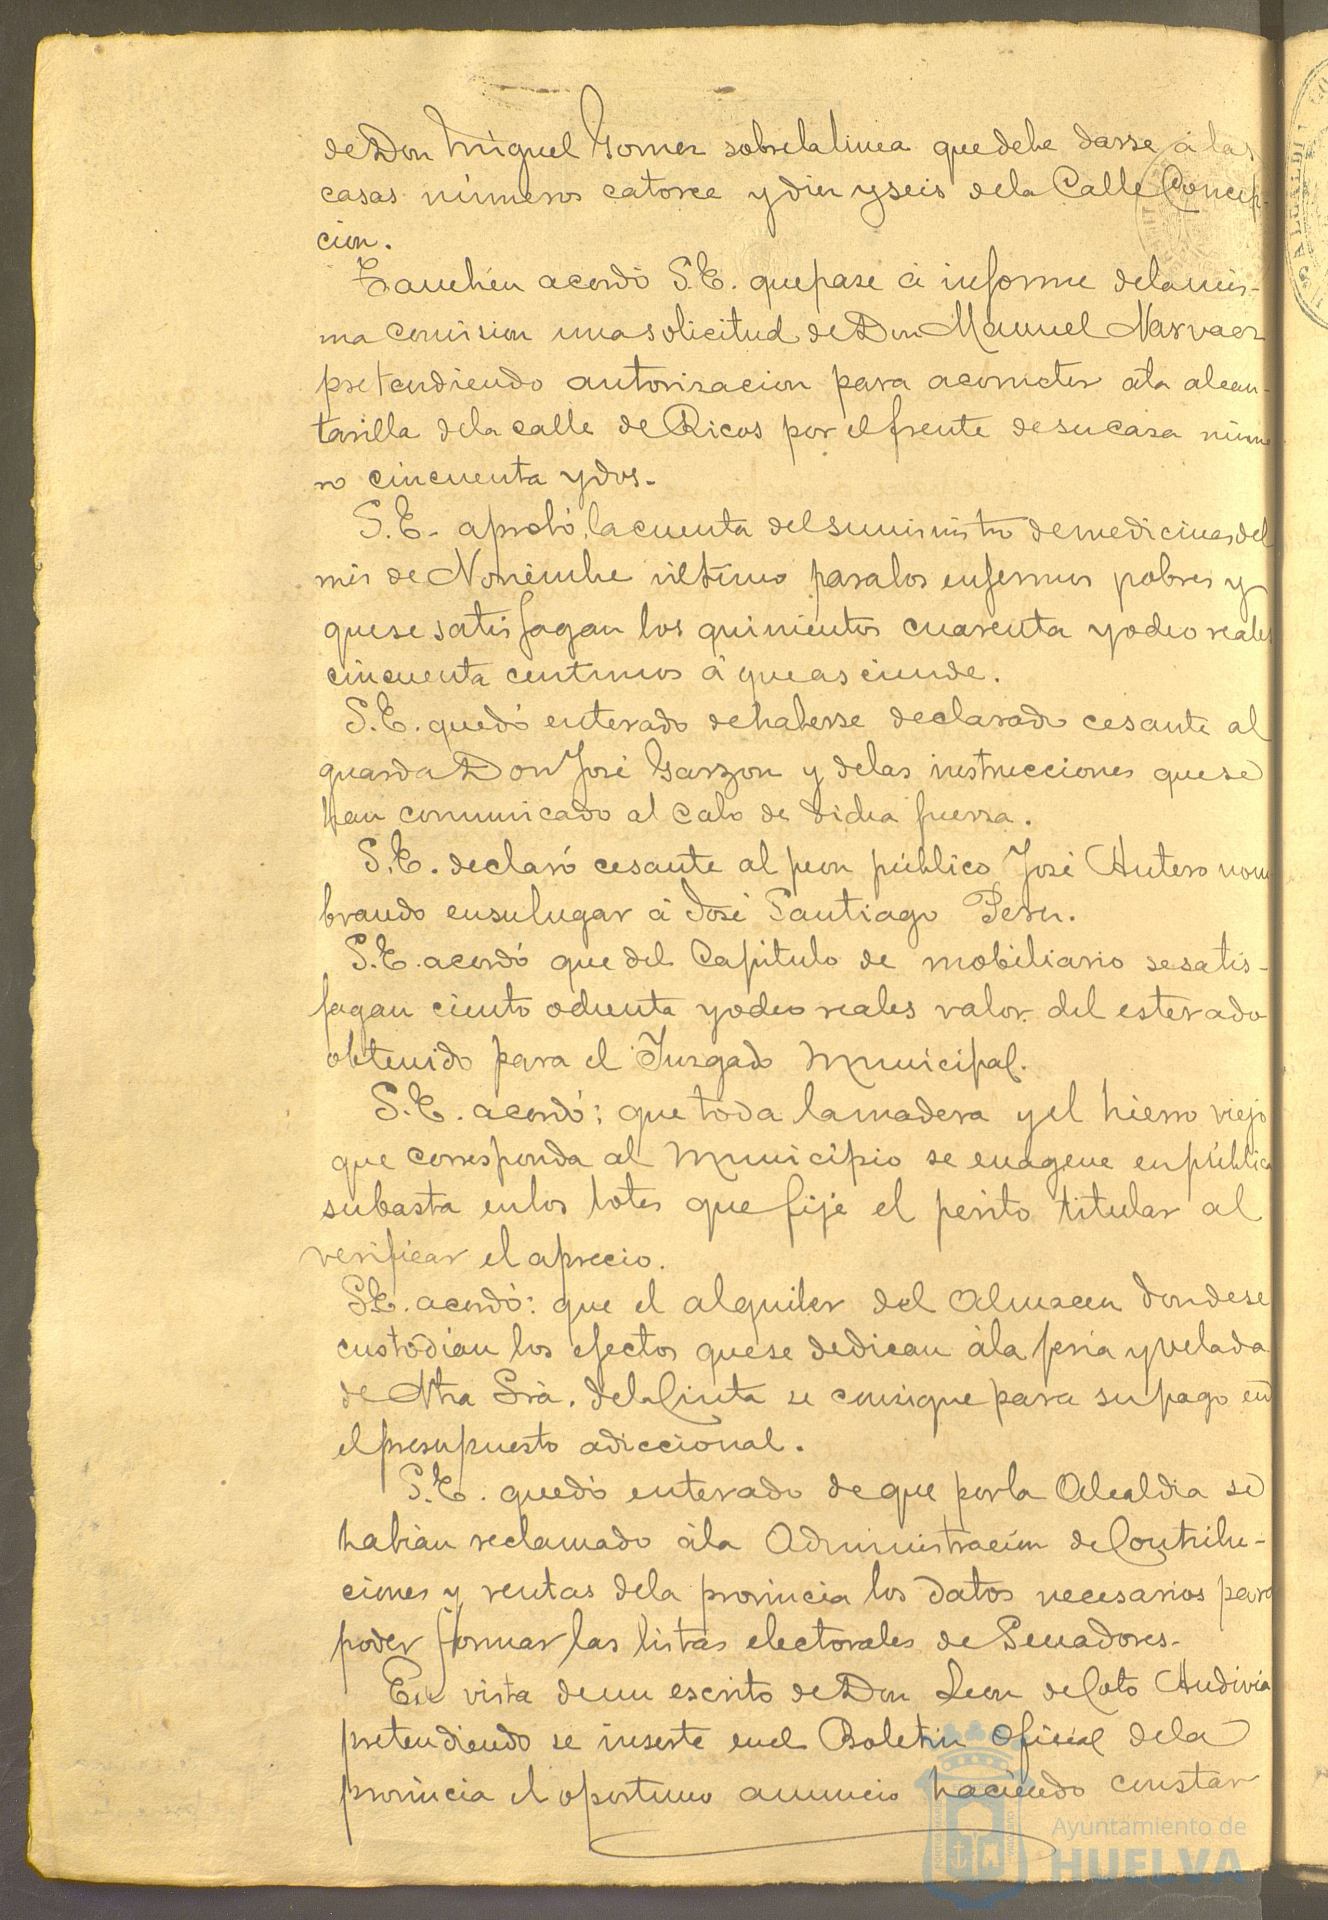 de Don Miguel Gomez sobre la linea que debe darse á las
casas números catorce y diez y seis de la Calle Concep-
cion.
Tambien acordó S.E. que pase á informe de la mis-
ma comision una solicitud de Don Manuel Narvaez
pretendiendo autorizacion para acometer á la alcan-
tarilla de la calle de Ricos por el frente de su casa núme
ro cincuenta y dos.
S.E. aprobó la cuenta del suministro de medicinas del
mes de Noviembre último para los enfermos pobres y
que se satisfagan los quinientos cuarenta y ocho reales
cincuenta centimos á que asciende.
S.E. quedó enterado de haberse declarado cesante al
guarda Don José Garzon y de las instrucciones que se
han comunicado al cabo de dicha fuerza.
S.E. declaró cesante al peon público José Antero nom
brando en su lugar á José Santiago
S.E. acordó que del Capitulo de mobiliario se satis-
fagan ciento ochenta y ocho reales valor del esterado
obtenido para el Juzgado Municipal.
S.E. acordó: que toda la madera y el hierro viejo
que corresponda al Municipio se enagene en pública
subasta en los lotes que fije el perito titular al
verificar el aprecio.
S.E. acordó: que el alquiler del Almacen donde se
custodian los efectos que se dedican á la feria y velada
de Ntra Sra. de la Cinta se consigne para su pago en
el presupuesto adiccional.
S.E. quedó enterado de que por la Alcaldia se
habian reclamado á la Administracion de Contribu-
ciones y rentas de la provincia los datos necesarios para
poder formar las listas electorales de Senadores.
En vista de un escrito de Don Leon de Coto Andivia
pretendiendo se inserte en el Boletin Oficial de la
provincia el oportuno anuncio haciendo constar
Ayuntamiento de
HUELVA